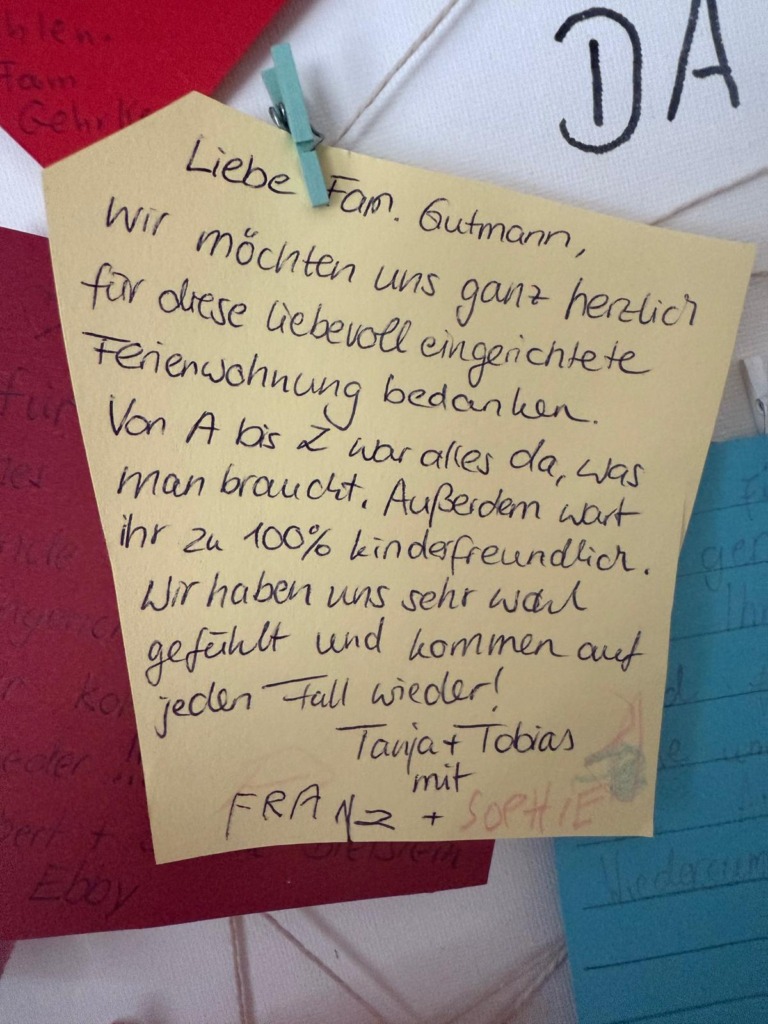 DA
Fam.
Liebe Fam. Gutmann,
Wir möchten uns ganz herzlich
für diese liebevoll eingerichtete
Ferienwohnung bedanken.
Von A bis Z war alles da, was
man braucht. Außerdem wart
ihr zu 100% kinderfreundlich.
Wir haben uns sehr wohl
gefühlt und kommen auf
jeden Fall wieder!
Tanja + Tobias
mit
FRANZ + SOPHIE
für
Ebby